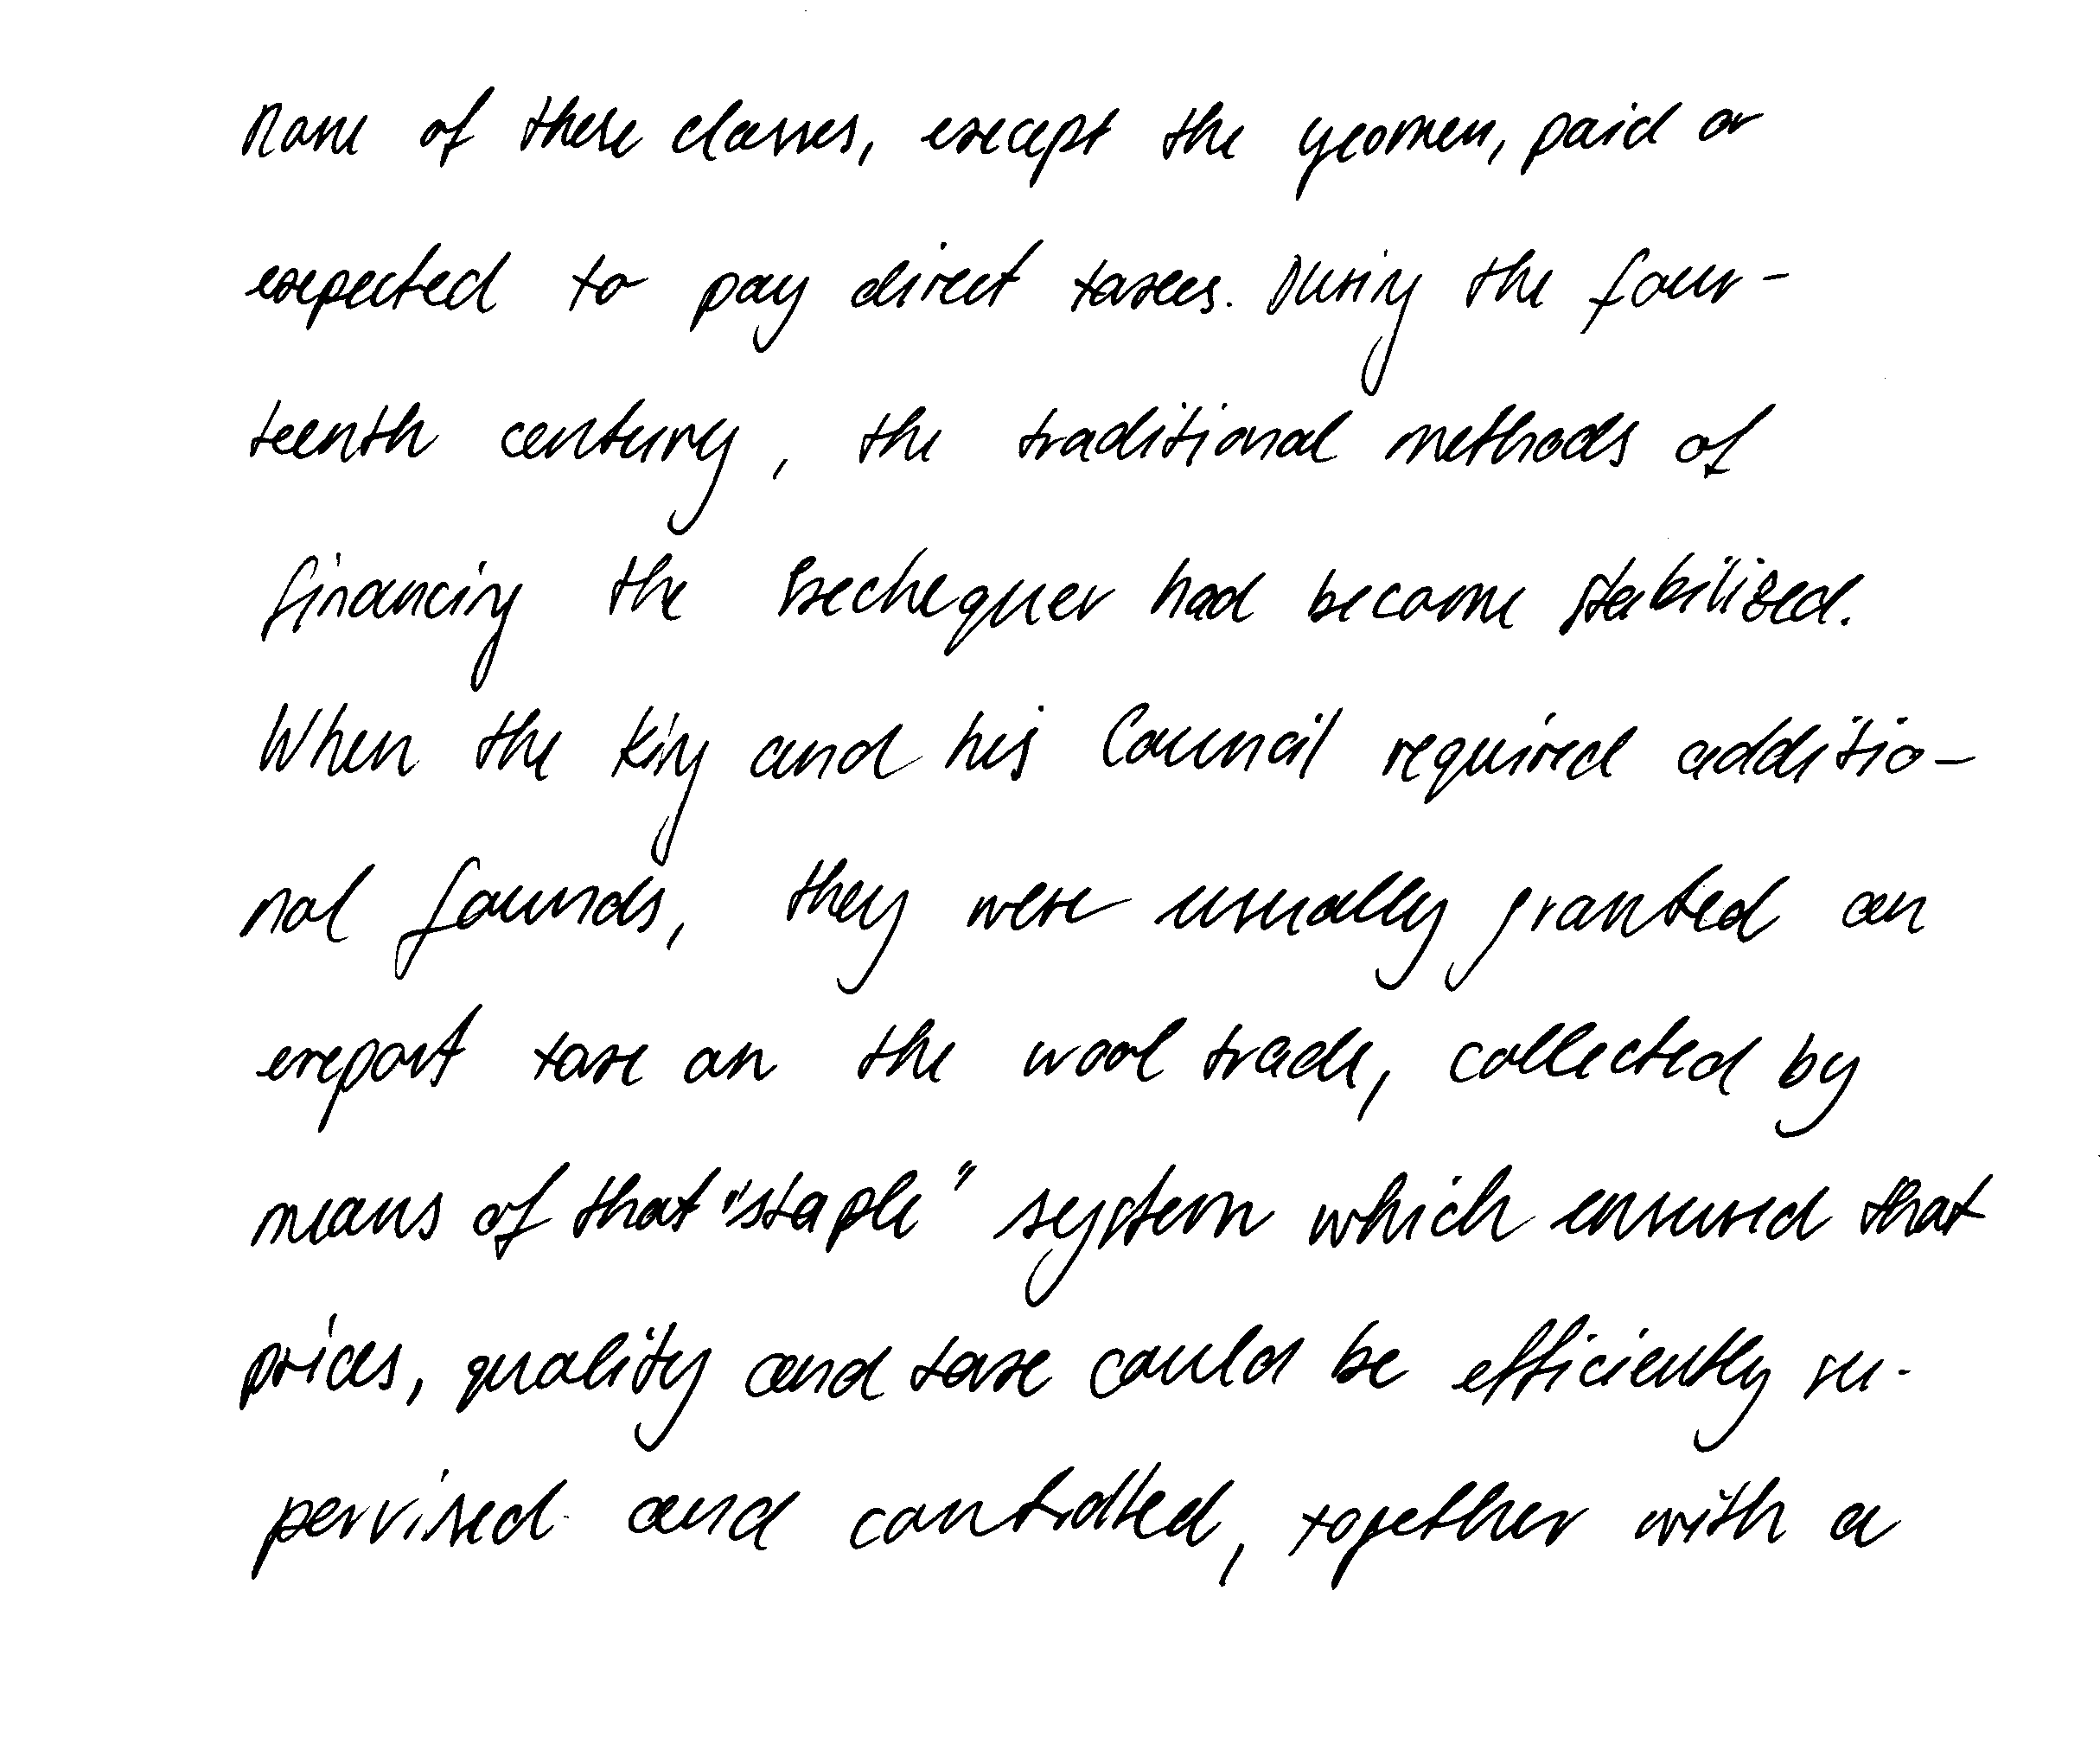 None of these classes, except the yeomen, paid or
expected to pay direct taxes. During the four-
teenth century, the traditional methods of
financing the Exchequer had become stabilised.
When the King and his Council required additio-
nal founds, they were usually granted an
export tax on the wool trade, collected by
means of that "staple" system which ensured that
prices, quality and tax could be efficiently su-
pervised and controlled, together with a